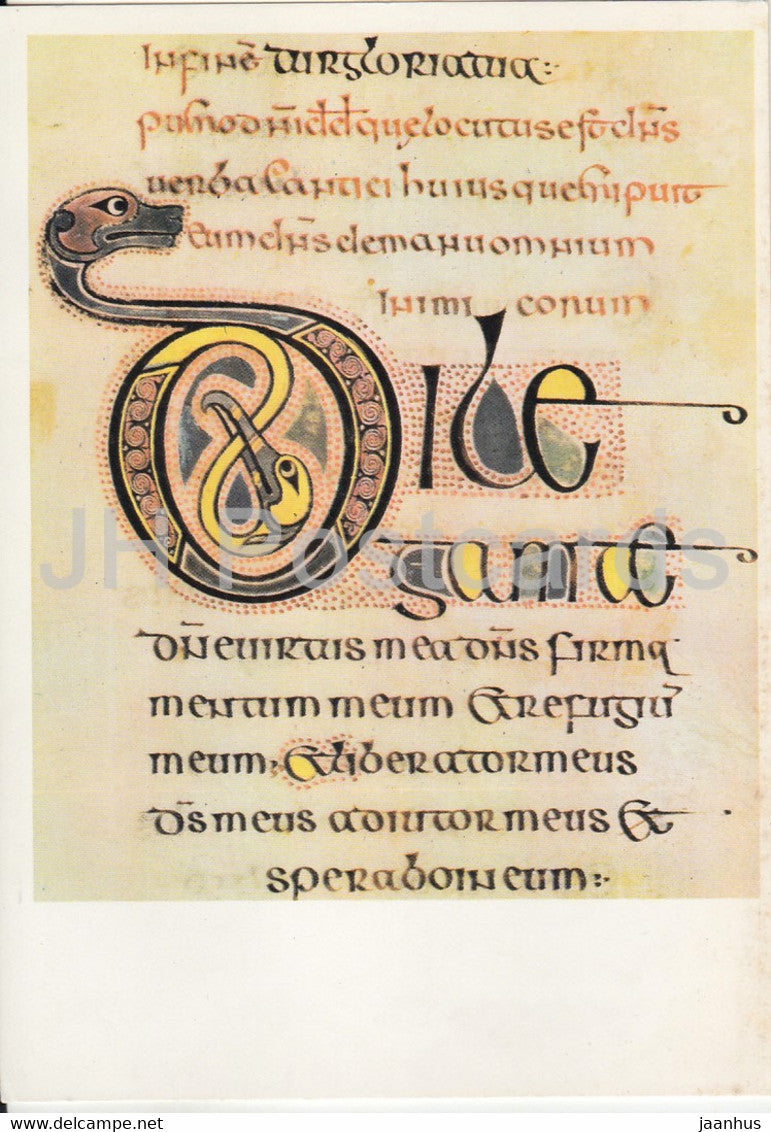 In finē tur gloria tua:
puero dn̄i dd que locutus est dn̄s
uerba cantici huius que eripuit
eum dn̄s de manu omnium
inimicorum
Dile
gam te
dn̄e uirtus mea dn̄s firma
mentum meum & refugiū
meum, & liberator meus
ds̄ meus adiutor meus &
sperabo in eum:·
JH Postcards
delcampe.net
jaanhus